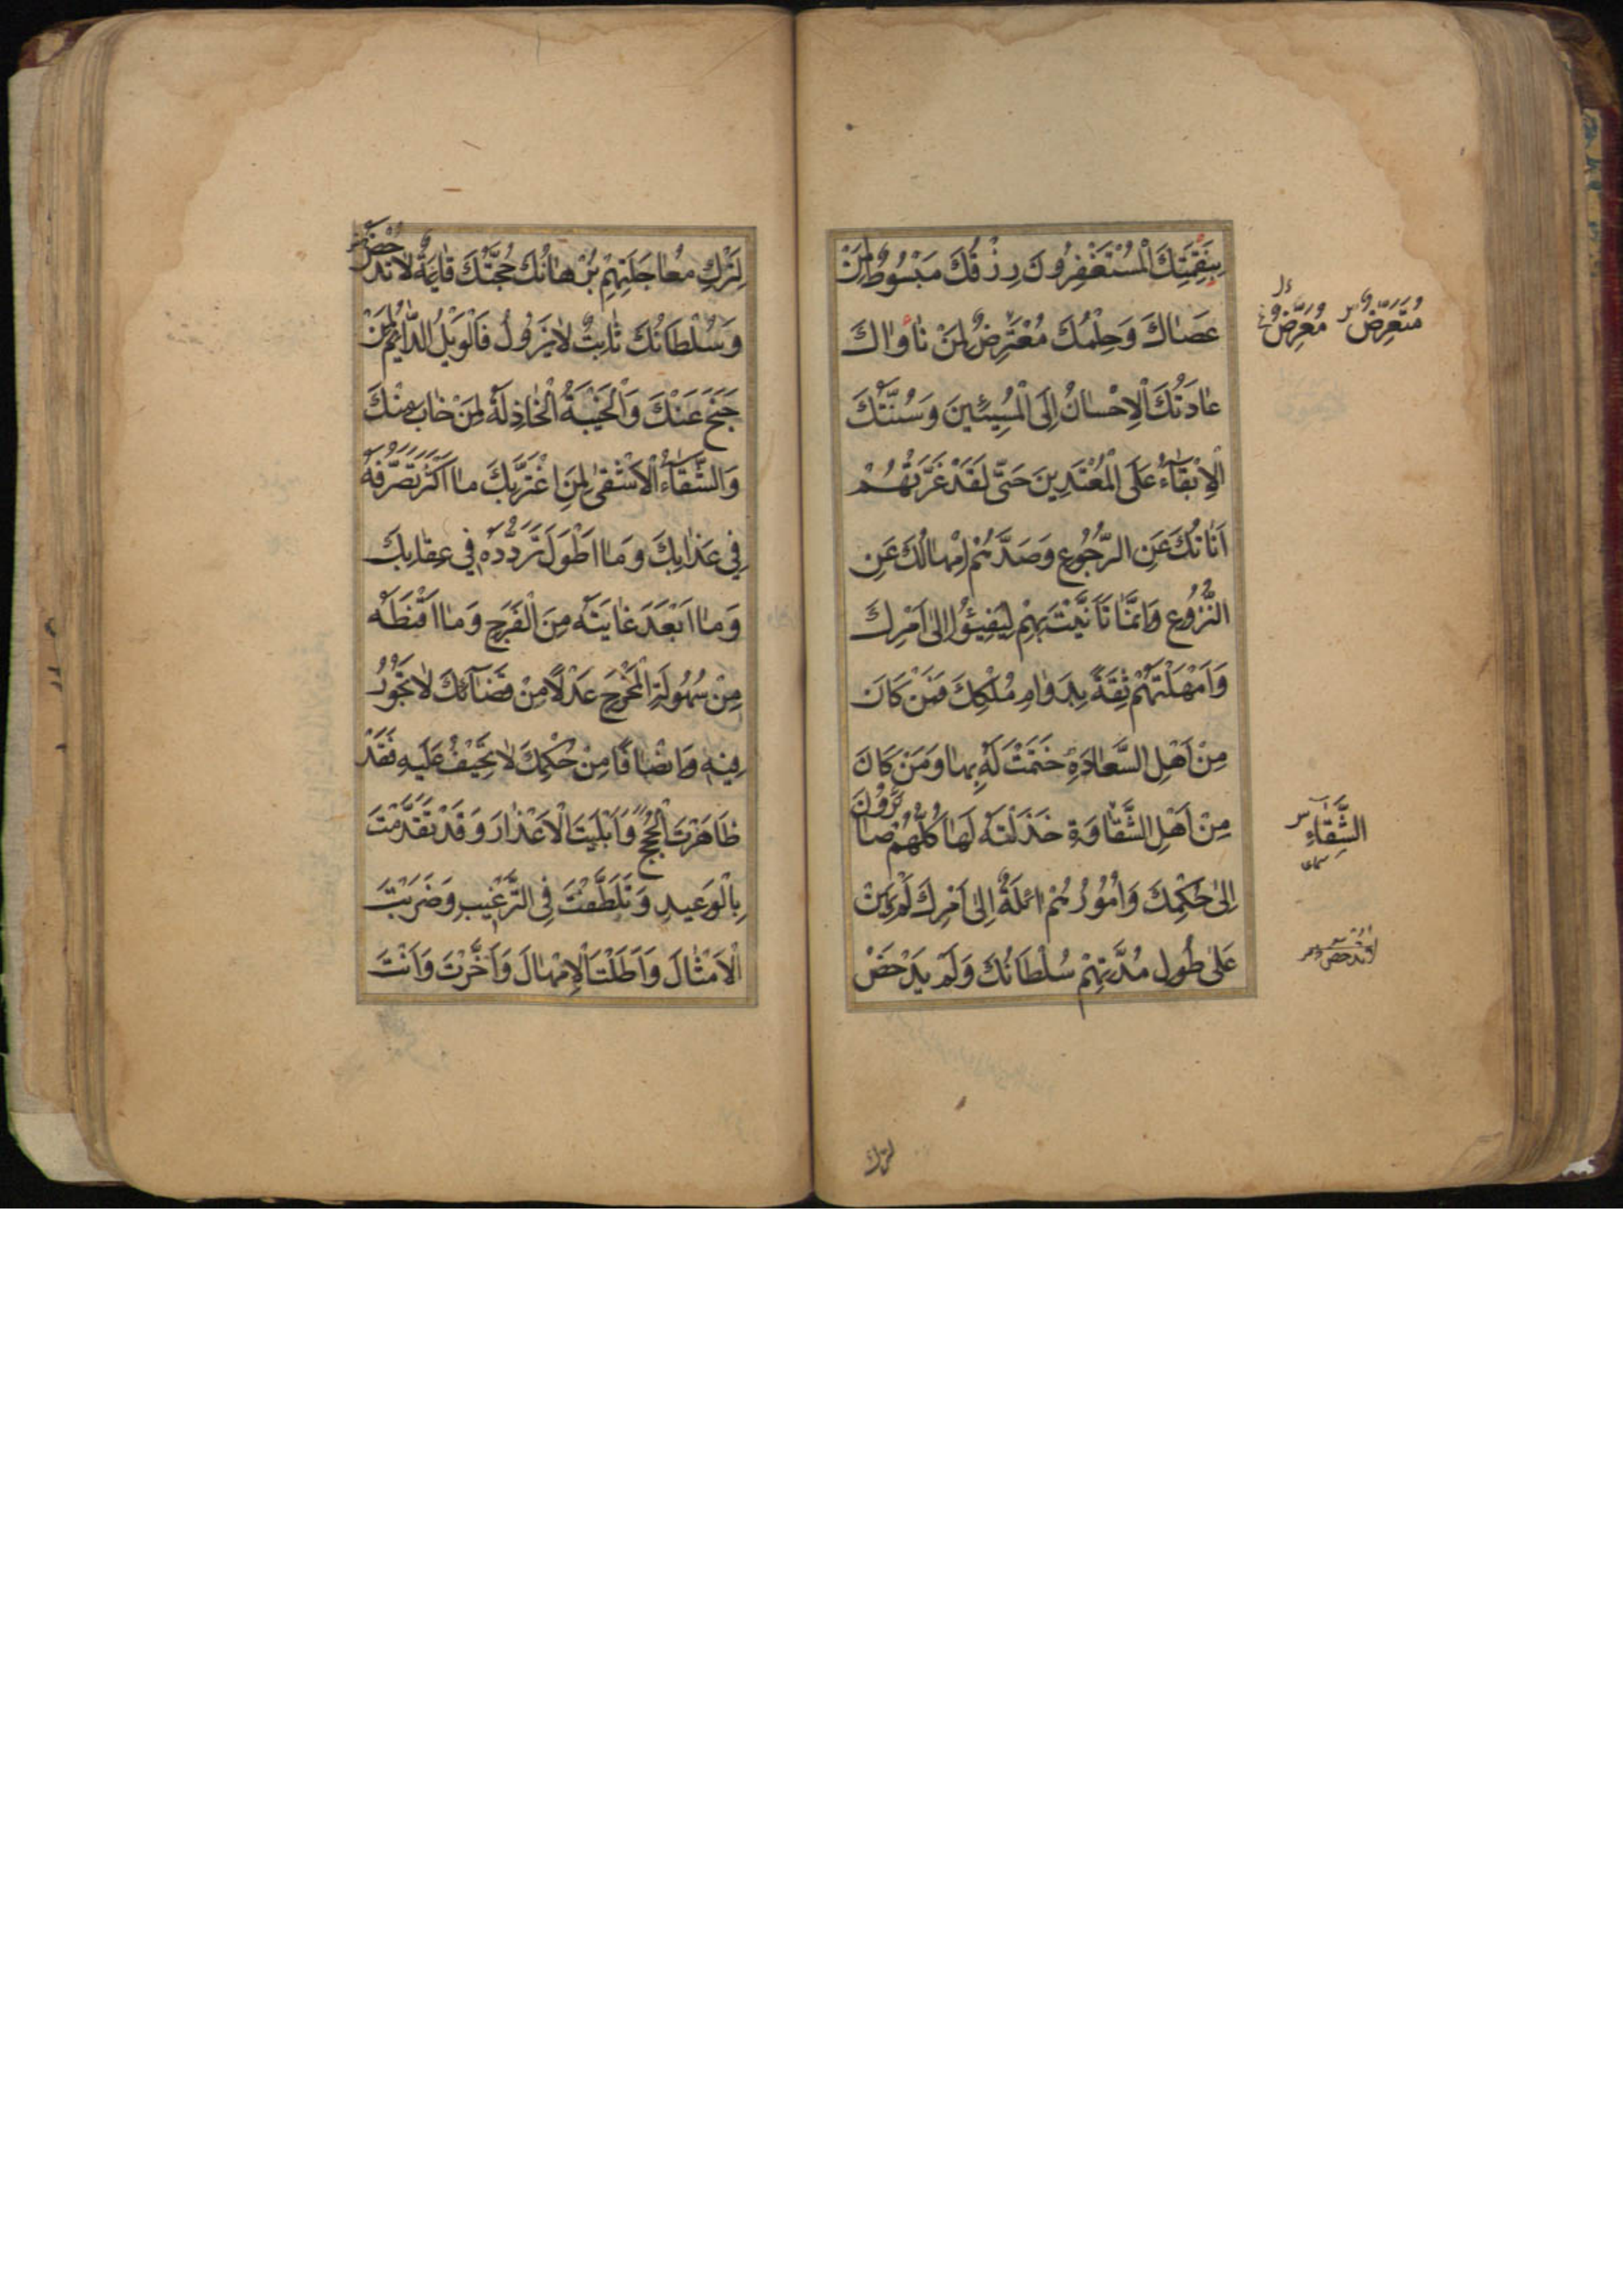 بِنَقِمَتِكَ الْمُسْتَغْفِرُونَ رِزْقُكَ مَبْسُوطٌ لِمَنْ
عَصٰاكَ وَحِلْمُكَ مُعْتَرِضٌ لِمَنْ نٰاوٰاكَ
مُتَعَرِّضٌ مُعَرَّضٌ
عٰادَتُكَ الْاِحْسٰانُ اِلَى الْمُسِيئينَ وَسُنَّتُكَ
الْاِبْقٰاءُ عَلَى الْمُعْتَدِينَ حَتّٰى لَقَدْ غَرَّتْهُمْ
اَنٰاتُكَ عَنِ الرُّجُوعِ وَصَدَّهُمْ اِمْهٰالُكَ عَنِ
النُّزُوعِ وَاِنَّمٰا تَاَنَّيْتَ بِهِمْ لِيَفِيئُوا اِلٰى اَمْرِكَ
وَاَمْهَلْتَهُمْ ثِقَةً بِدَوٰامِ مُلْكِكَ فَمَنْ كَانَ
مِنْ اَهْلِ السَّعٰادَةِ خَتَمْتَ لَهُ بِهٰا وَمَنْ كَانَ
مِنْ اَهْلِ الشَّقٰاوَةِ خَذَلْتَهُ لَهٰا كُلُّهُمْ صٰائِرُونَ
الشَّقٰاءِ
اِلٰى حُكْمِكَ وَاُمُورُهُمْ اٰئِلَةٌ اِلٰى اَمْرِكَ لَمْ يَهِنْ
عَلٰى طُولِ مُدَّتِهِمْ سُلْطَانُكَ وَلَمْ يَدْحَضْ
لترك
لِتَرْكِ مُعٰاجَلَتِهِمْ بُرْهٰانُكَ حُجَّتُكَ قٰائِمَةٌ لٰا تُدْحَضُ
وَسُلْطَانُكَ ثٰابِتٌ لٰا يَزُولُ فَالْوَيْلُ الدّٰائِمُ لِمَنْ
جَنَحَ عَنْكَ وَالْخَيْبَةُ الْخٰاذِلَةُ لِمَنْ خٰابَ مِنْكَ
وَالشَّقٰاءُ الْاَشْقٰى لِمَنِ اغْتَرَّ بِكَ مٰا اَكْثَرَ تَصَرُّفَهُ
فِي عَذٰابِكَ وَمٰا اَطْوَلَ تَرَدُّدَهُ فِي عِقٰابِكَ
وَمٰا اَبْعَدَ غٰايَتَهُ مِنَ الْفَرَجِ وَمٰا اَقْنَطَهُ
مِنْ سُهُولَةِ الْمَخْرَجِ عَدْلًا مِنْ قَضٰائِكَ لٰا تَجُورُ
فِيهِ وَاِنْصٰافًا مِنْ حُكْمِكَ لٰا تَحِيفُ عَلَيْهِ فَقَدْ
ظٰاهَرْتَ الْحُجَجَ وَاَبْلَيْتَ الْاَعْذٰارَ وَقَدْ تَقَدَّمْتَ
بِالْوَعِيدِ وَتَلَطَّفْتَ فِي التَّرْغِيبِ وَضَرَبْتَ
الْاَمْثٰالَ وَاَطَلْتَ الْاِمْهٰالَ وَاَخَّرْتَ وَاَنْتَ